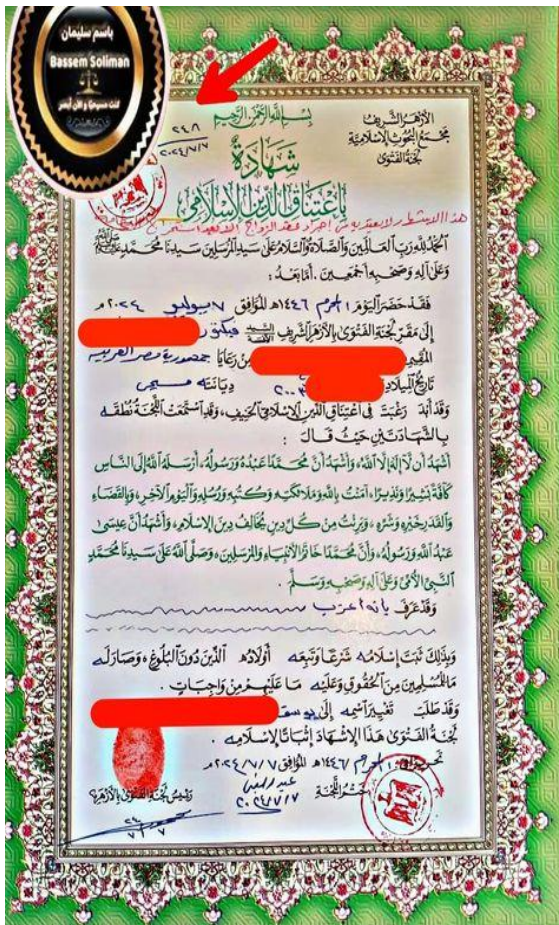 باسم سليمان
Bassem Soliman
كنت مسيحيا و الآن أبصر
الأزهر الشريف
مجمع البحوث الإسلامية
لجنة الفتوى
بسم الله الرحمن الرحيم
٢٤٨
٢٠٢٤/٧/٧
شهادة
باعتناق الدين الإسلامي
هذا الإشهار لا يعتد به في إجراء عقد الزواج إلا بعد
الحمد لله رب العالمين والصلاة والسلام على سيد المرسلين سيدنا محمد ﷺ
وعلى آله وصحبه أجمعين . أما بعد :
فقد حضر اليوم ١ محرم ١٤٤٦هـ الموافق ٧ يوليو ٢٠٢٤م
إلى مقر لجنة الفتوى بالأزهر الشريف السيد الآنسة فيكتور
المقيم من رعايا جمهورية مصر العربية
تاريخ الميلاد ٢٠٠٣ ديانته مسيحى
وقد أبد رغبته فى اعتناق الدين الإسلامى الحنيف، وقد استمعت اللجنة نطقه
بالشهادتين حيث قال :
أشهد أن لا إله إلا الله، وأشهد أن محمدا عبده ورسوله، أرسله الله إلى الناس
كافة بشيرا ونذيرا، آمنت بالله وملائكته وكتبه ورسله واليوم الآخر، وبالقضاء
والقدر خيره وشره ، وبرئت من كل دين يخالف دين الإسلام، وأشهد أن عيسى
عبد الله ورسوله، وأن محمدا خاتم الأنبياء والمرسلين، وصلى الله على سيدنا محمد
النبى الأمى وعلى آله وصحبه وسلم .
وقد عرف بانه أعزب
وبذلك ثبت إسلامه شرعا وتبعه أولاده الذين دون البلوغ، وصار له
ما للمسلمين من الحقوق وعليه ما عليهم من واجبات .
وقد طلب تغيير اسمه إلى يوسف
لجنة الفتوى هذا الإشهاد إثباتا لإسلامه .
تحريرا فى ١ محرم ١٤٤٦هـ الموافق ٢٠٢٤/٧/٧م
رئيس لجنة الفتوى بالأزهر
ختم اللجنة
٢٠٢٤/٧/٧